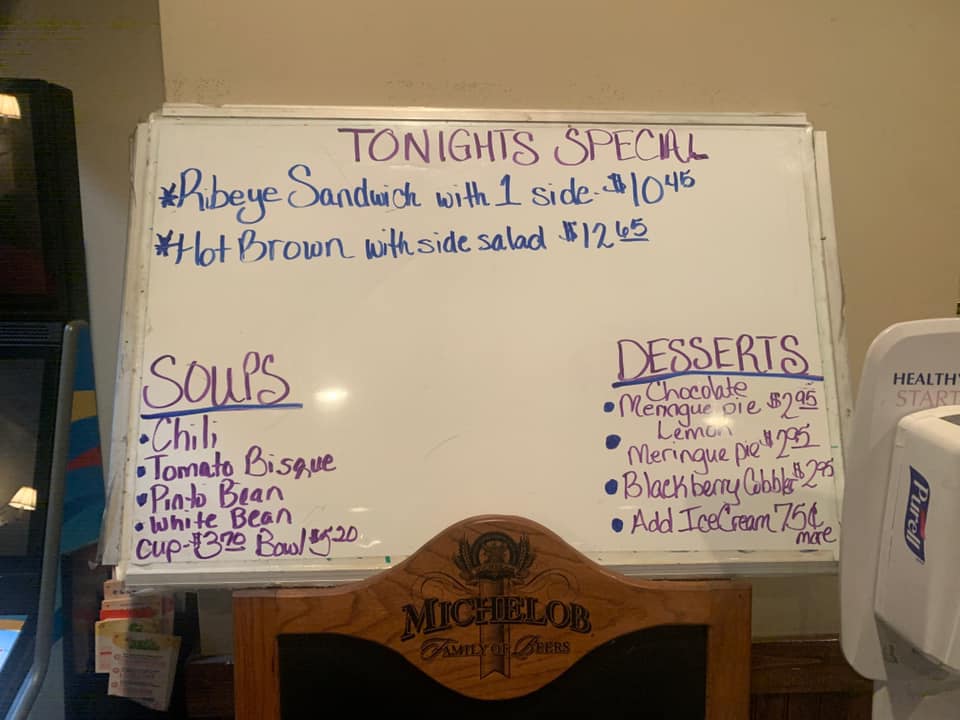 TONIGHTS SPECIAL
*Ribeye Sandwich with 1 side - $10 45
*Hot Brown with side salad $12 65
SOUPS
• Chili
• Tomato Bisque
• Pinto Bean
• White Bean
Cup - $3.70 Bowl $5.20
DESSERTS
Chocolate
• Meringue pie $2 95
Lemon
• Meringue pie $2 95
• Blackberry Cobbler $2 95
• Add Ice Cream 75¢
more
MICHELOB
FAMILY OF BEERS
HEALTHY
START
Purell